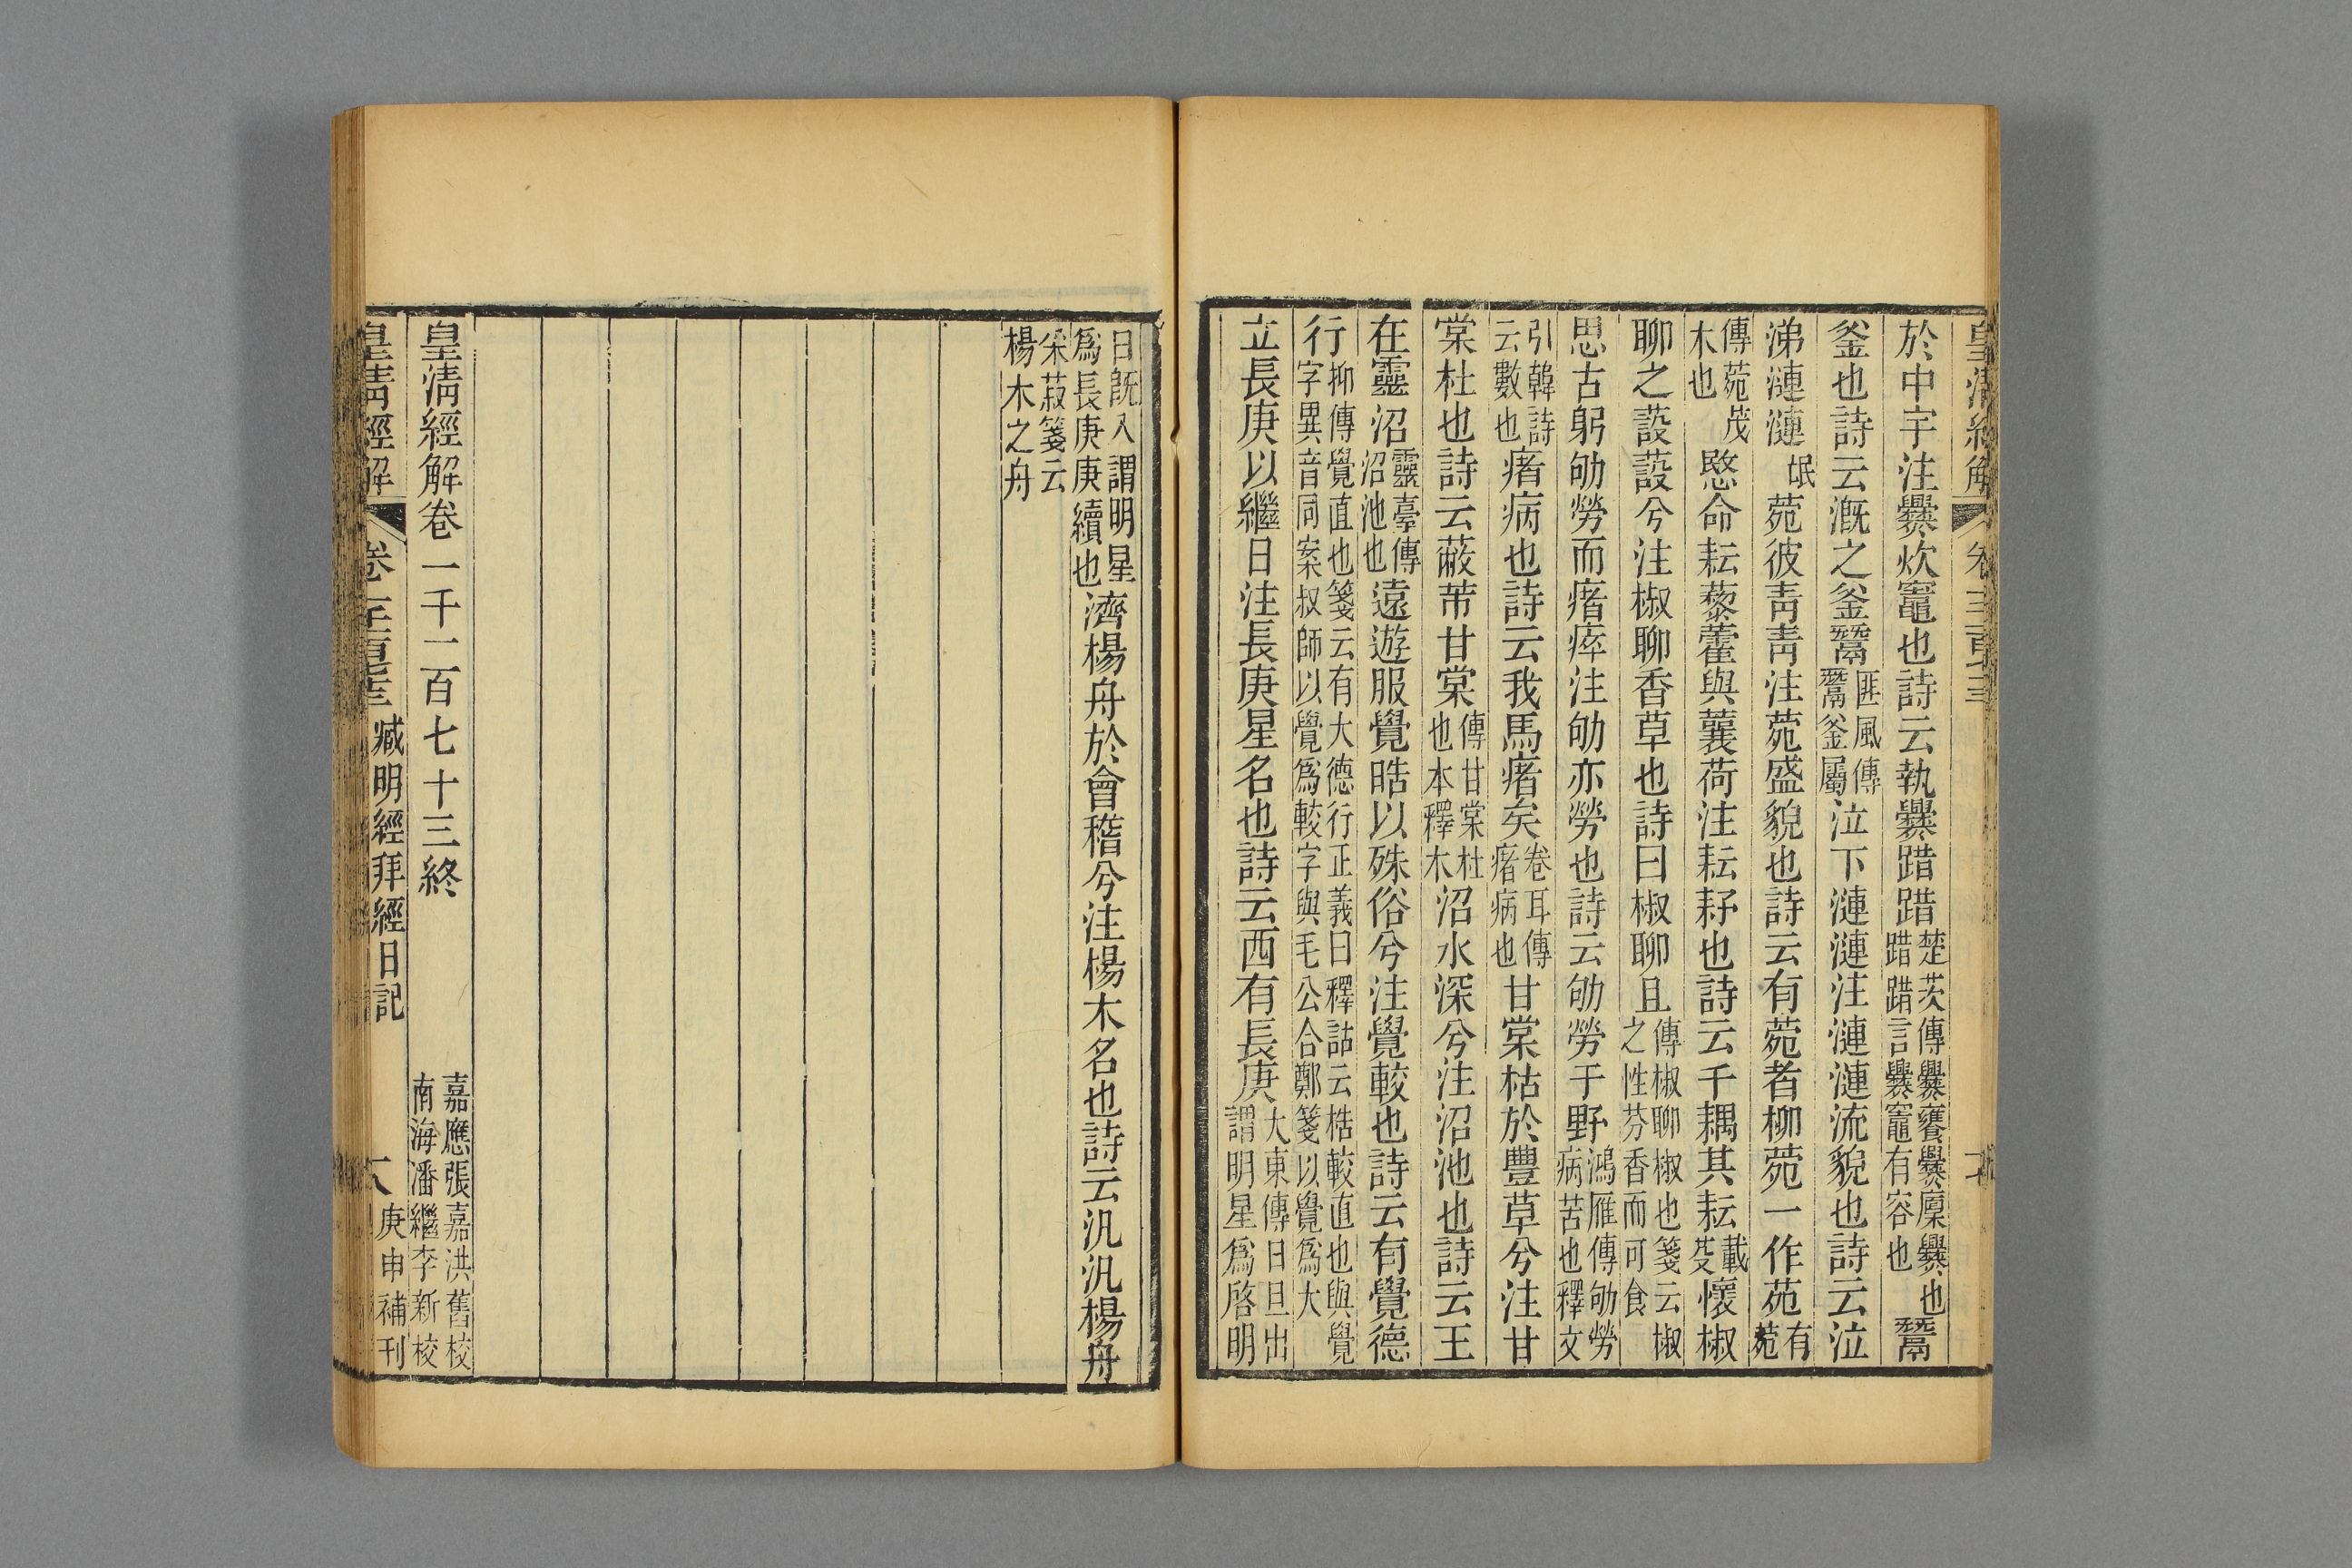 皇清經解
於中宇注爨炊竈也詩云執爨踖踖楚茨傳爨饔爨廩爨也踖踖言爨竈有容也鬵
釜也詩云漑之釜鬵匪風傳鬵釜屬泣下漣漣注漣漣流貌也詩云泣
涕漣漣氓菀彼靑靑注菀盛貌也詩云有菀者柳菀一作苑有菀
傳菀茂木也愍命耘藜藿與蘘荷注耘耔也詩云千耦其耘載芟懷椒
聊之蔎蔎兮注椒聊香草也詩曰椒聊且傳椒聊椒也箋云椒之性芬香而可食
思古躬劬勞而瘏瘁注劬亦勞也詩云劬勞于野鴻雁傳劬勞病苦也釋文
引韓詩云數也瘏病也詩云我馬瘏矣卷耳傳瘏病也甘棠枯於豐草兮注甘
棠杜也詩云蔽芾甘棠傳甘棠杜也本釋木沼水深兮注沼池也詩云王
在靈沼靈臺傳沼池也遠遊服覺晧以殊俗兮注覺較也詩云有覺德
行抑傳覺直也箋云有大德行正義曰釋詁云梏較直也與覺字異音同案叔師以覺爲較字與毛公合鄭箋以覺爲大
立長庚以繼日注長庚星名也詩云西有長庚大東傳日旦出謂明星爲啓明
日旣入謂明星爲長庚庚續也濟楊舟於會稽兮注楊木名也詩云汎汎楊舟
采菽箋云楊木之舟
皇淸經解卷一千二百七十三終
嘉應張嘉洪舊校
南海潘繼李新校
皇淸經解
臧明經拜經日記
庚申補刊